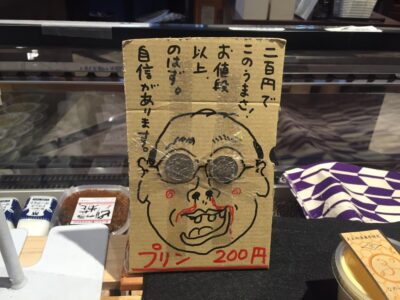 二百円で
このうまさ!
お値段
以上
のはず。
自信があります。
プリン 200円